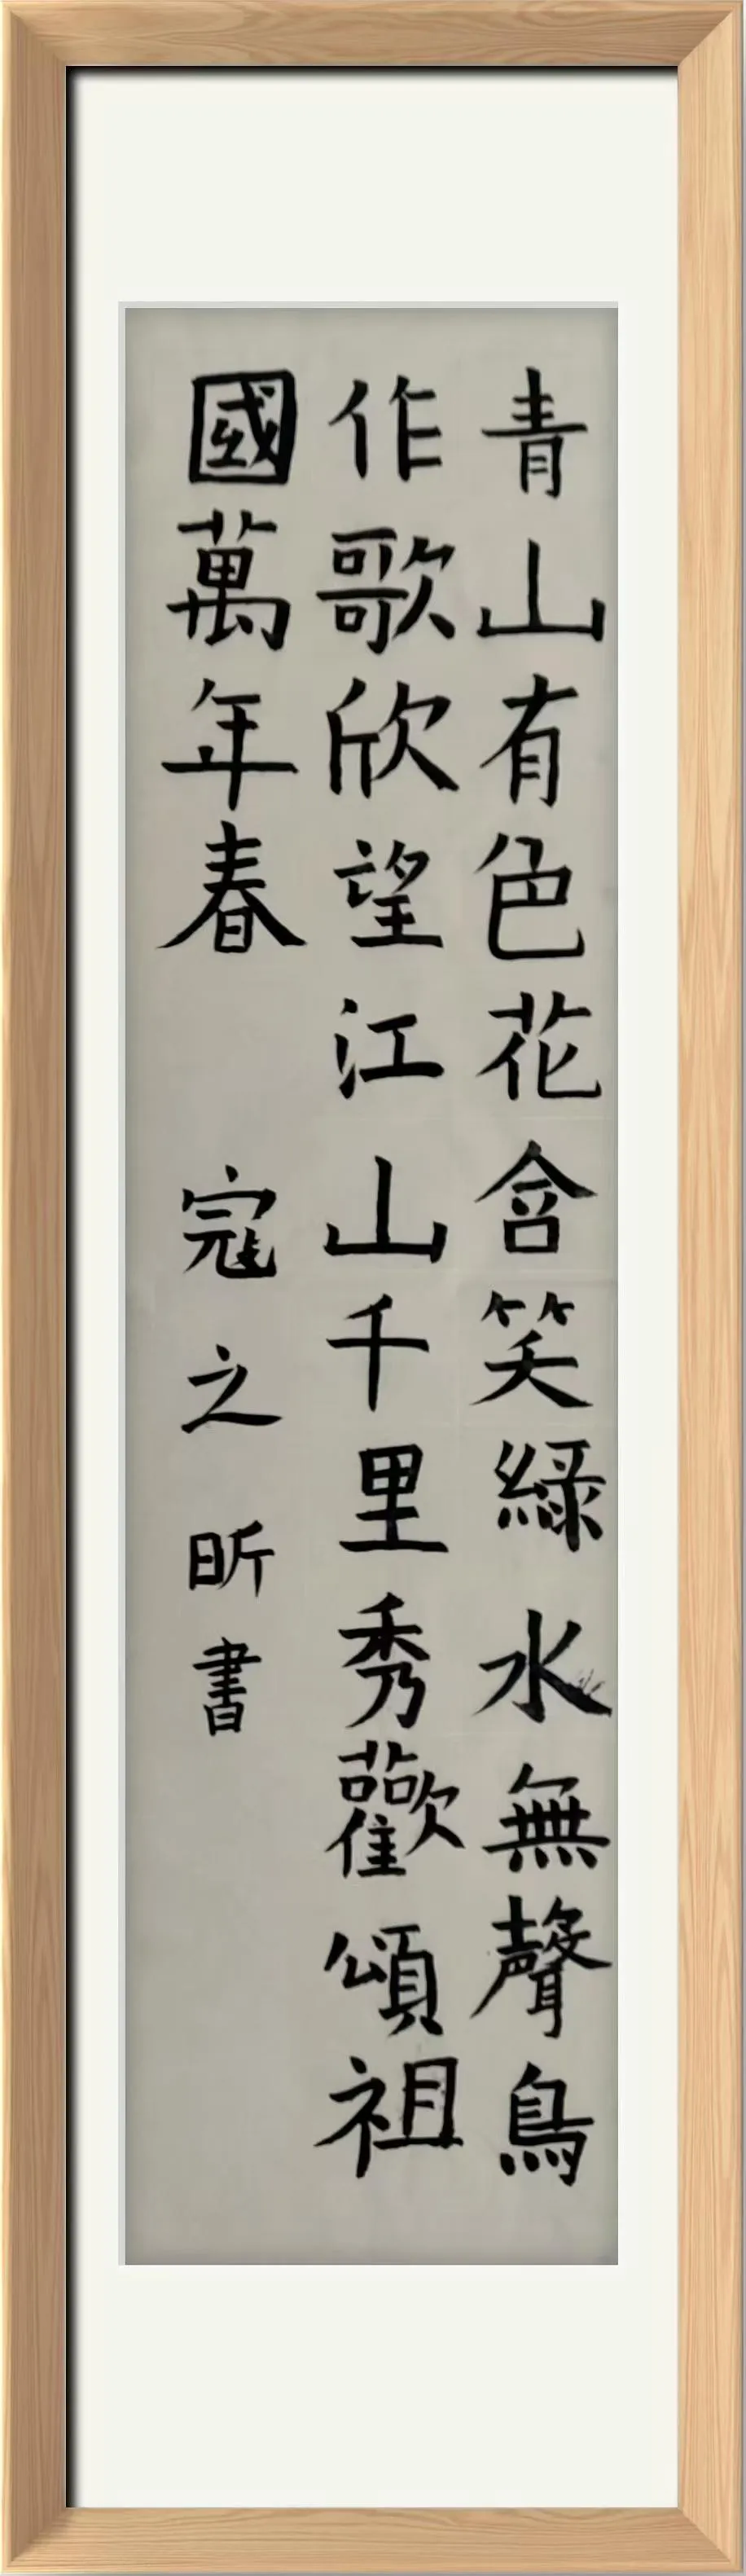 青山有色花含笑綠水無聲鳥
作歌欣望江山千里秀歡頌祖
國萬年春
寇之昕書